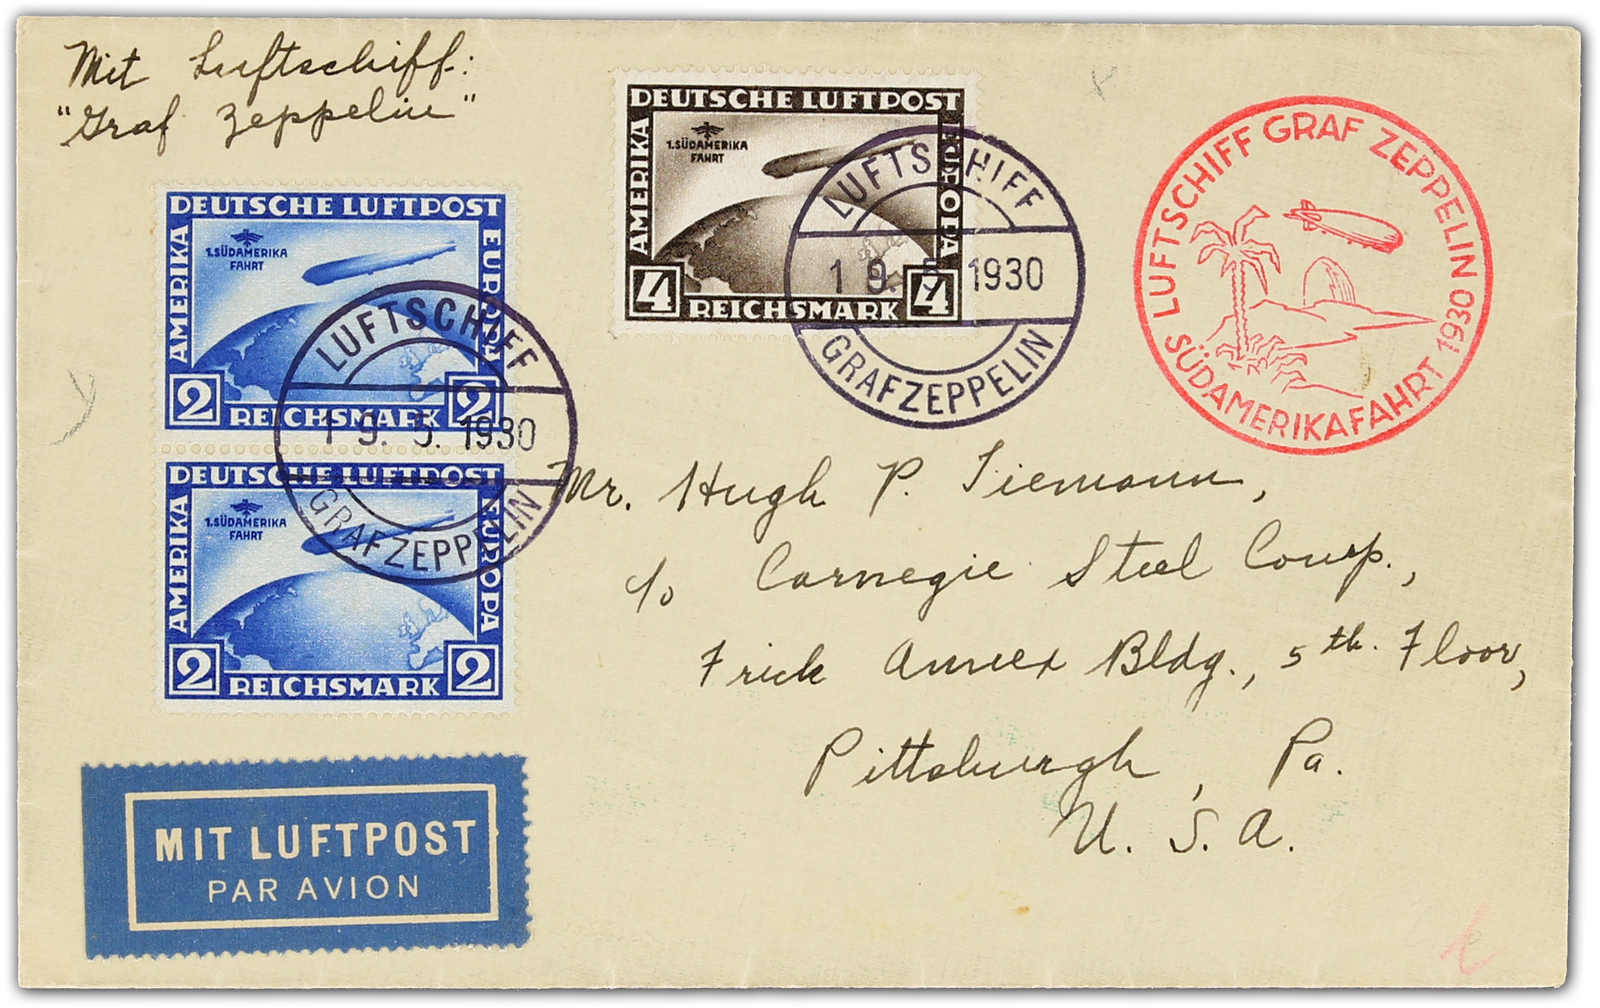 Mit Luftschiff:
"Graf Zeppelin"
DEUTSCHE LUFTPOST
AMERIKA
EUROPA
1.SÜDAMERIKA
FAHRT
4 REICHSMARK 4
LUFTSCHIFF
19. 5. 1930
GRAF ZEPPELIN
LUFTSCHIFF GRAF ZEPPELIN
SÜDAMERIKAFAHRT 1930
DEUTSCHE LUFTPOST
AMERIKA
EUROPA
1.SÜDAMERIKA
FAHRT
2 REICHSMARK 2
LUFTSCHIFF
19. 5. 1930
GRAF ZEPPELIN
DEUTSCHE LUFTPOST
AMERIKA
EUROPA
1.SÜDAMERIKA
FAHRT
2 REICHSMARK 2
Mr. Hugh P. Tiemann,
c/o Carnegie Steel Comp.,
Frick Annex Bldg., 5th. Floor,
Pittsburgh, Pa.
U. S. A.
MIT LUFTPOST
PAR AVION